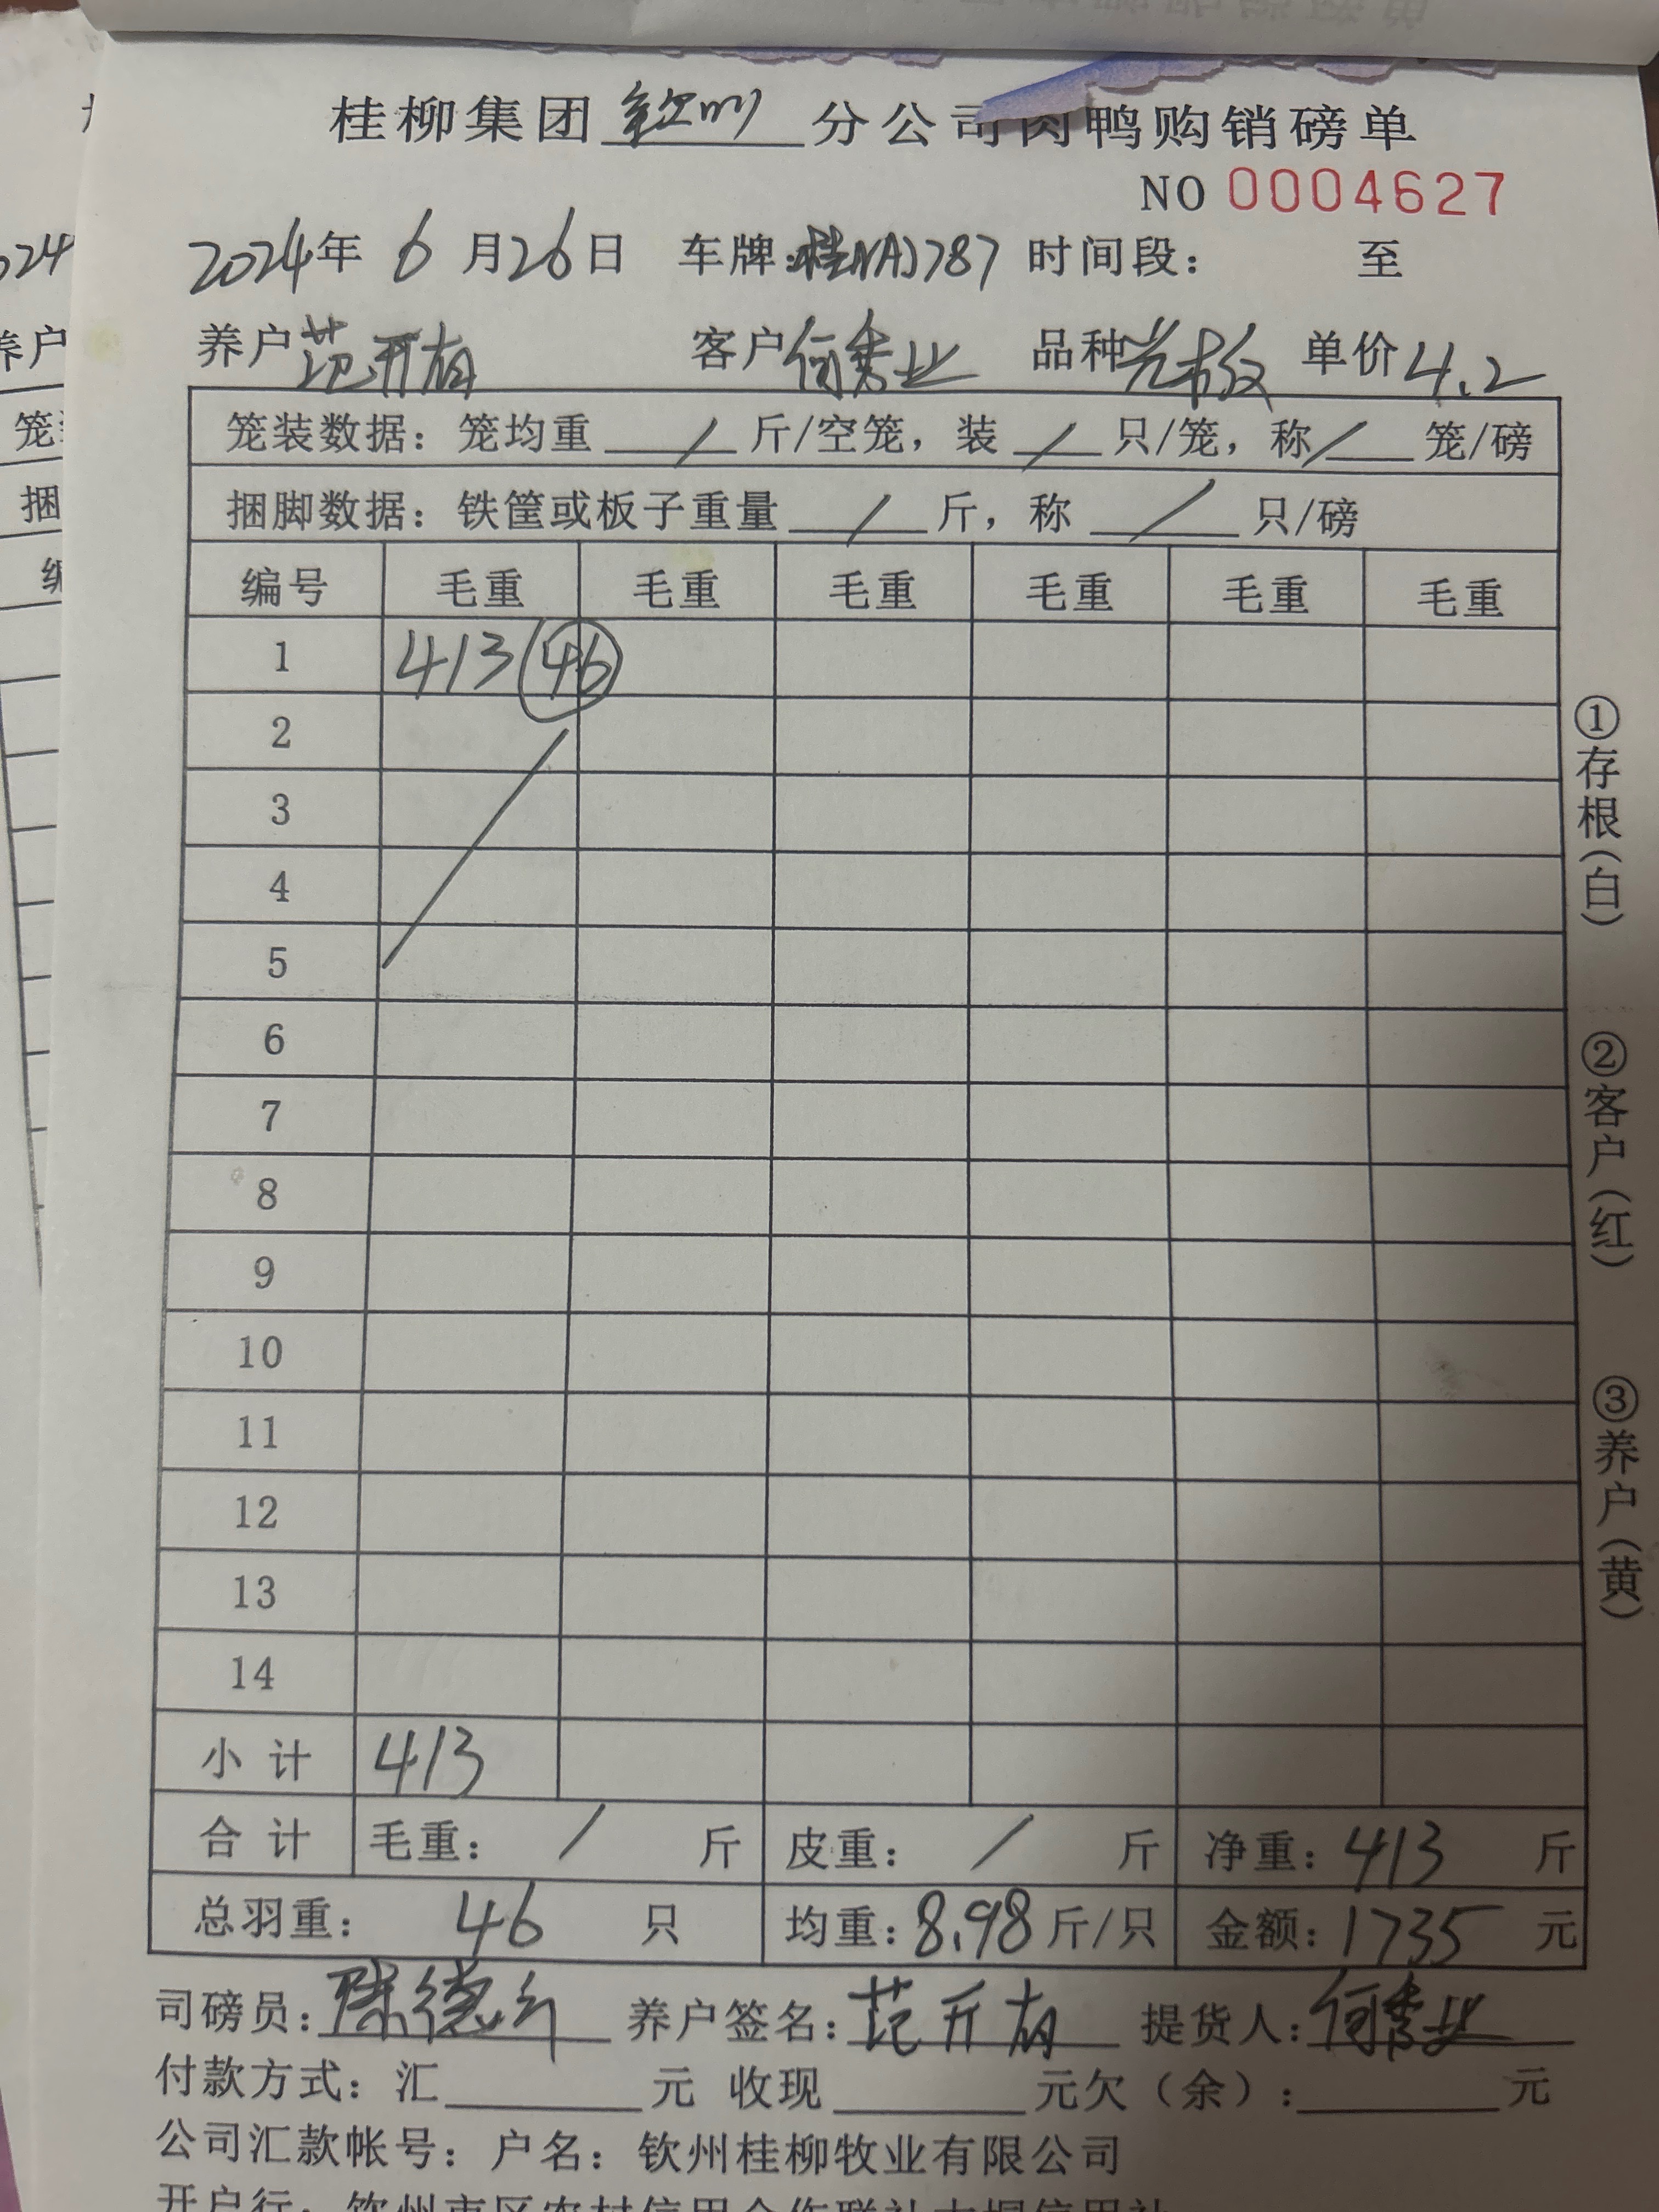 桂柳集团钦州分公司肉鸭购销磅单
NO 0004627
2024年 6 月26日 车牌:桂NAJ787 时间段: 至
养户 范开有 客户 何秀业 品种 单价4.2
笼装数据: 笼均重 / 斤/空笼, 装 / 只/笼, 称 / 笼/磅
捆脚数据: 铁筐或板子重量 / 斤, 称 / 只/磅
编号 毛重 毛重 毛重 毛重 毛重 毛重
1 413 46
2
3
4
5
6
7
8
9
10
11
12
13
14
小计 413
合计 毛重: / 斤 皮重: / 斤 净重: 413 斤
总羽重: 46 只 均重: 8.98 斤/只 金额: 1735 元
司磅员: 陈德 养户签名: 范开有 提货人: 何秀业
付款方式: 汇 元 收现 元欠(余): 元
公司汇款帐号: 户名: 钦州桂柳牧业有限公司
开户行: 钦州市区农村信用合作联社大垌信用社
①存根(白)
②客户(红)
③养户(黄)